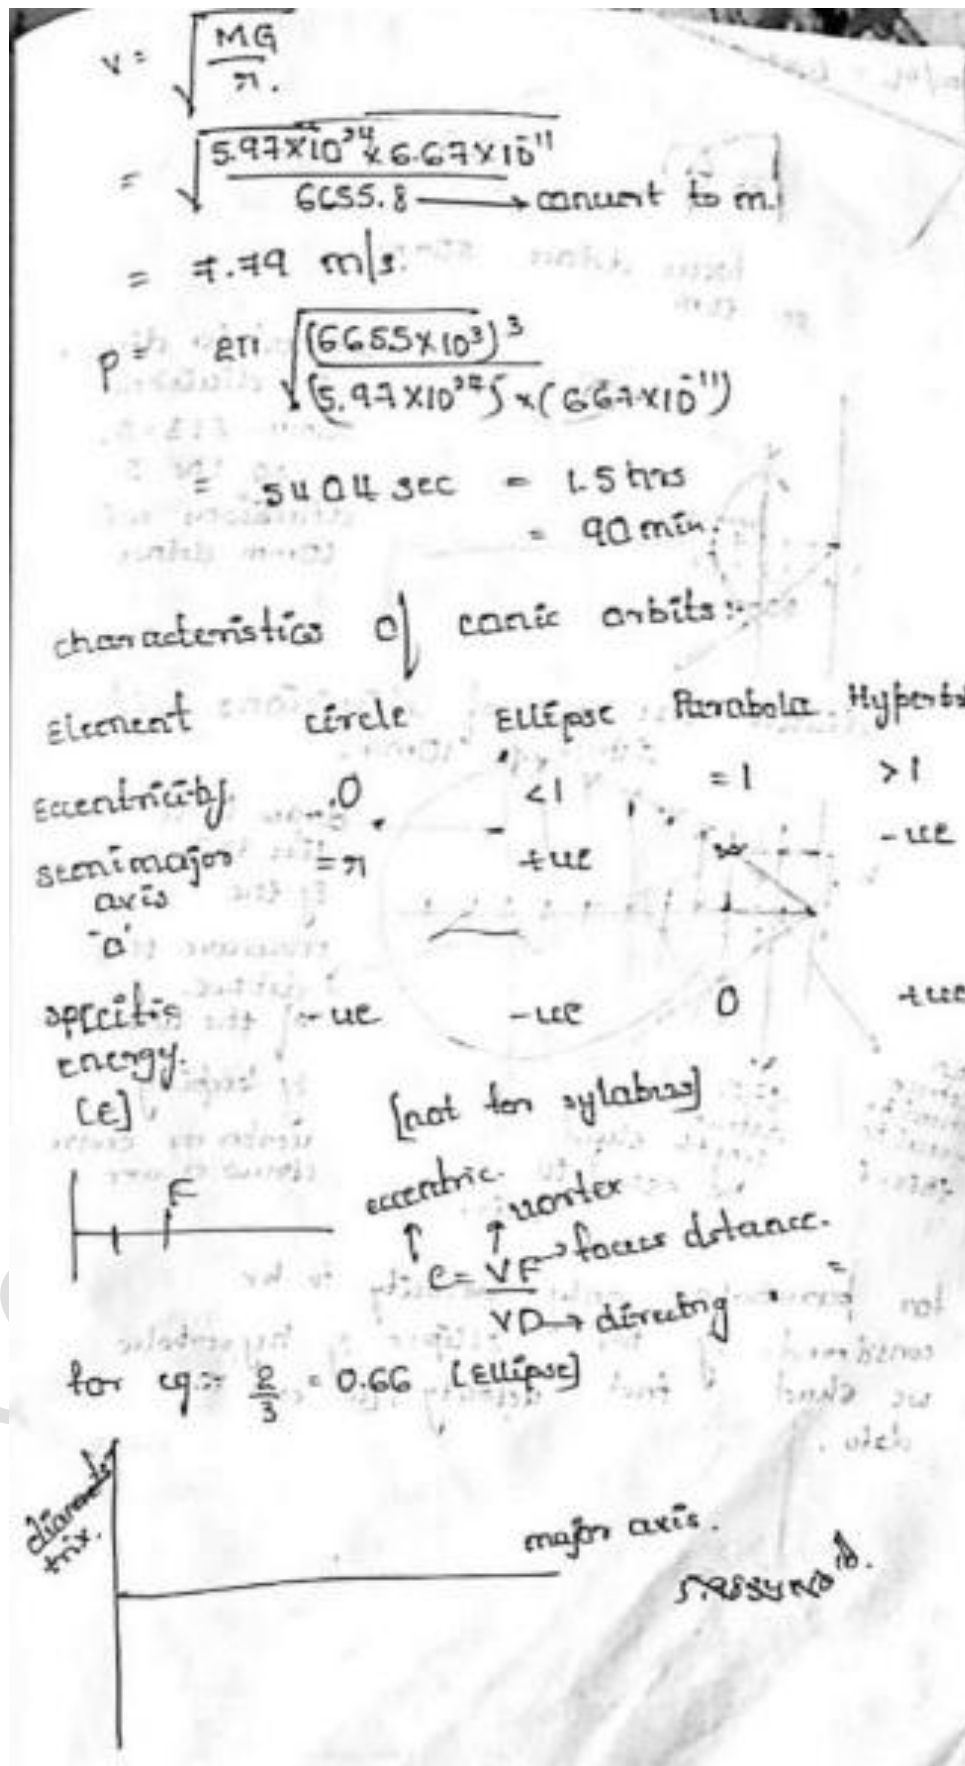 v = √MG/r.
= √5.97×10²⁴×6.67×10⁻¹¹
6655.8 → convert to m.
= 7.79 m/s.
P = 2π √(6655×10³)³
(5.97×10²⁴)×(6.67×10⁻¹¹)
= 5404 sec = 1.5 hrs
= 90 min.
characteristics of conic orbits:-
Element circle Ellipse Parabola Hyperb
Eccentricity. 0 <1 =1 >1
semimajor =r +ve ∞ -ve
axis
'a'
specific -ve -ve 0 +ve
energy.
[E] [not for sylabus]
F eccentric. vortex
e = VF → focus distance.
VD → directing
for eg:- 2/3 = 0.66 [Ellipse]
major axis.